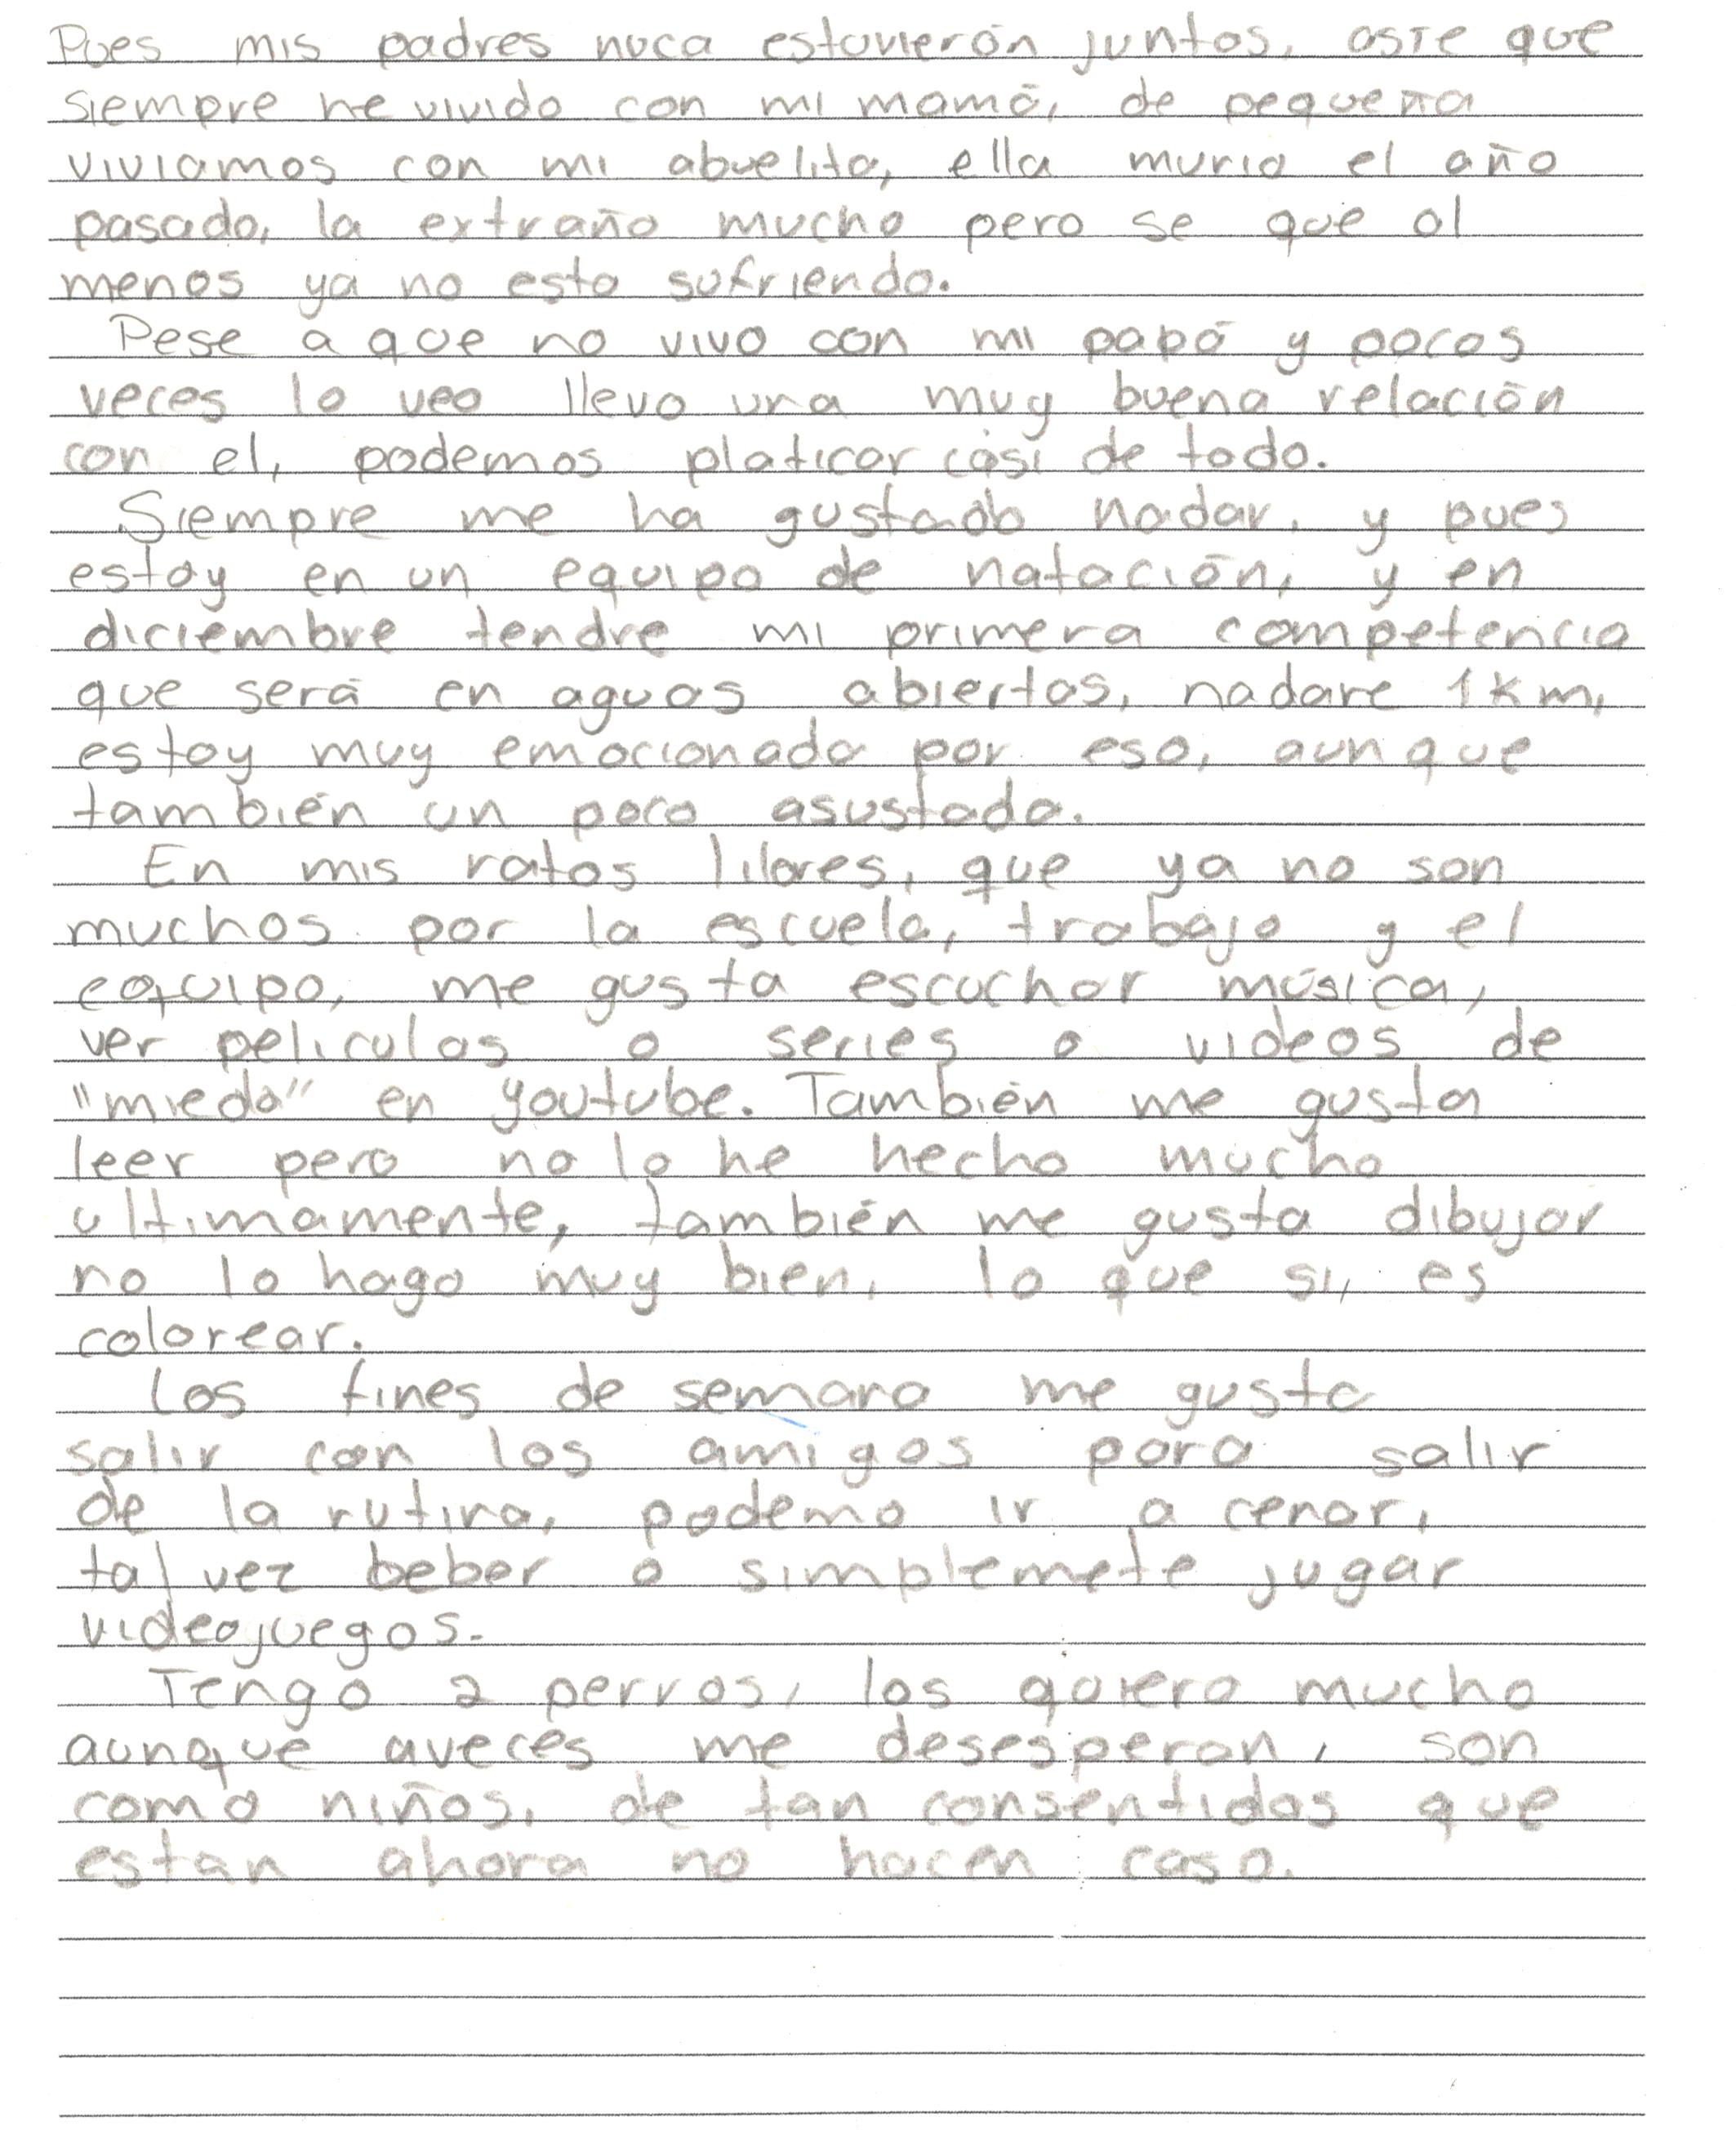 Pues mis padres nuca estuvierón juntos, asie que
siempre he vivido con mi mamá, de pequeña
viviamos con mi abuelita, ella murio el año
pasado, la extraño mucho pero se que al
menos ya no esta sufriendo.
Pese a que no vivo con mi papá y pocas
veces lo veo llevo una muy buena relación
con el, podemos platicar casi de todo.
Siempre me ha gustado nadar, y pues
estoy en un equipo de natación, y en
diciembre tendre mi primera competencia
que será en aguas abiertas, nadare 1km,
estoy muy emocionada por eso, aunque
también un poco asustada.
En mis ratos libres, que ya no son
muchos por la escuela, trabajo y el
equipo, me gusta escuchar música,
ver peliculas o series o videos de
"miedo" en youtube. También me gusta
leer pero no lo he hecho mucho
ultimamente, también me gusta dibujar
no lo hago muy bien, lo que si, es
colorear.
Los fines de semana me gusta
salir con los amigos para salir
de la rutina, podemo ir a cenar,
tal vez beber o simplemete jugar
videojuegos.
Tengo 2 perros, los quiero mucho
aunque aveces me desesperan, son
como niños, de tan consentidos que
estan ahora no hacen caso.